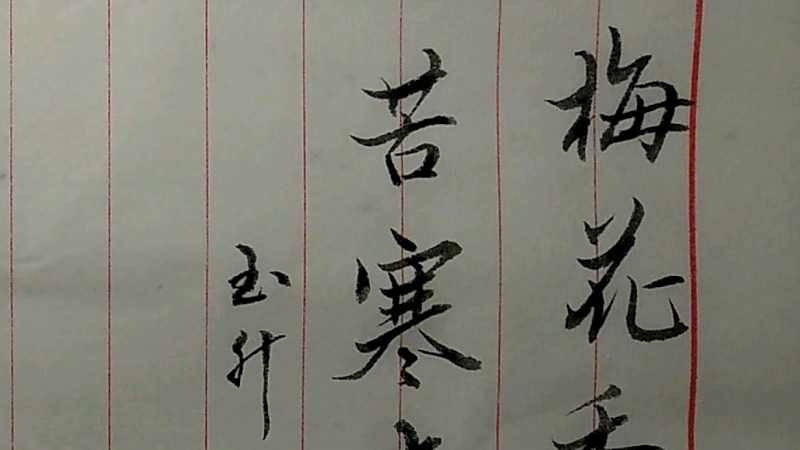 梅花香
苦寒
玉升